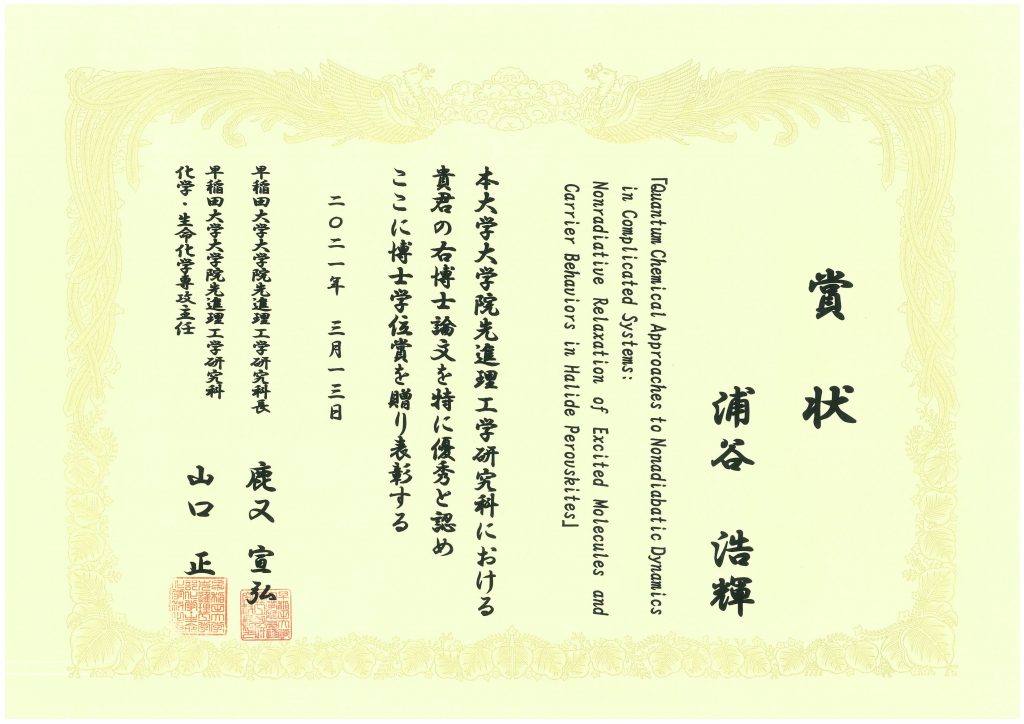 賞状
浦谷 浩輝
『Quantum Chemical Approaches to Nonadiabatic Dynamics
in Complicated Systems:
Nonradiative Relaxation of Excited Molecules and
Carrier Behaviors in Halide Perovskites』
本大学大学院先進理工学研究科における
貴君の右博士論文を特に優秀と認め
ここに博士学位賞を贈り表彰する
二〇二一年 三月一三日
早稲田大学大学院先進理工学研究科長 鹿又 宣弘
早稲田大学大学院先進理工学研究科
化学・生命化学専攻主任 山口 正